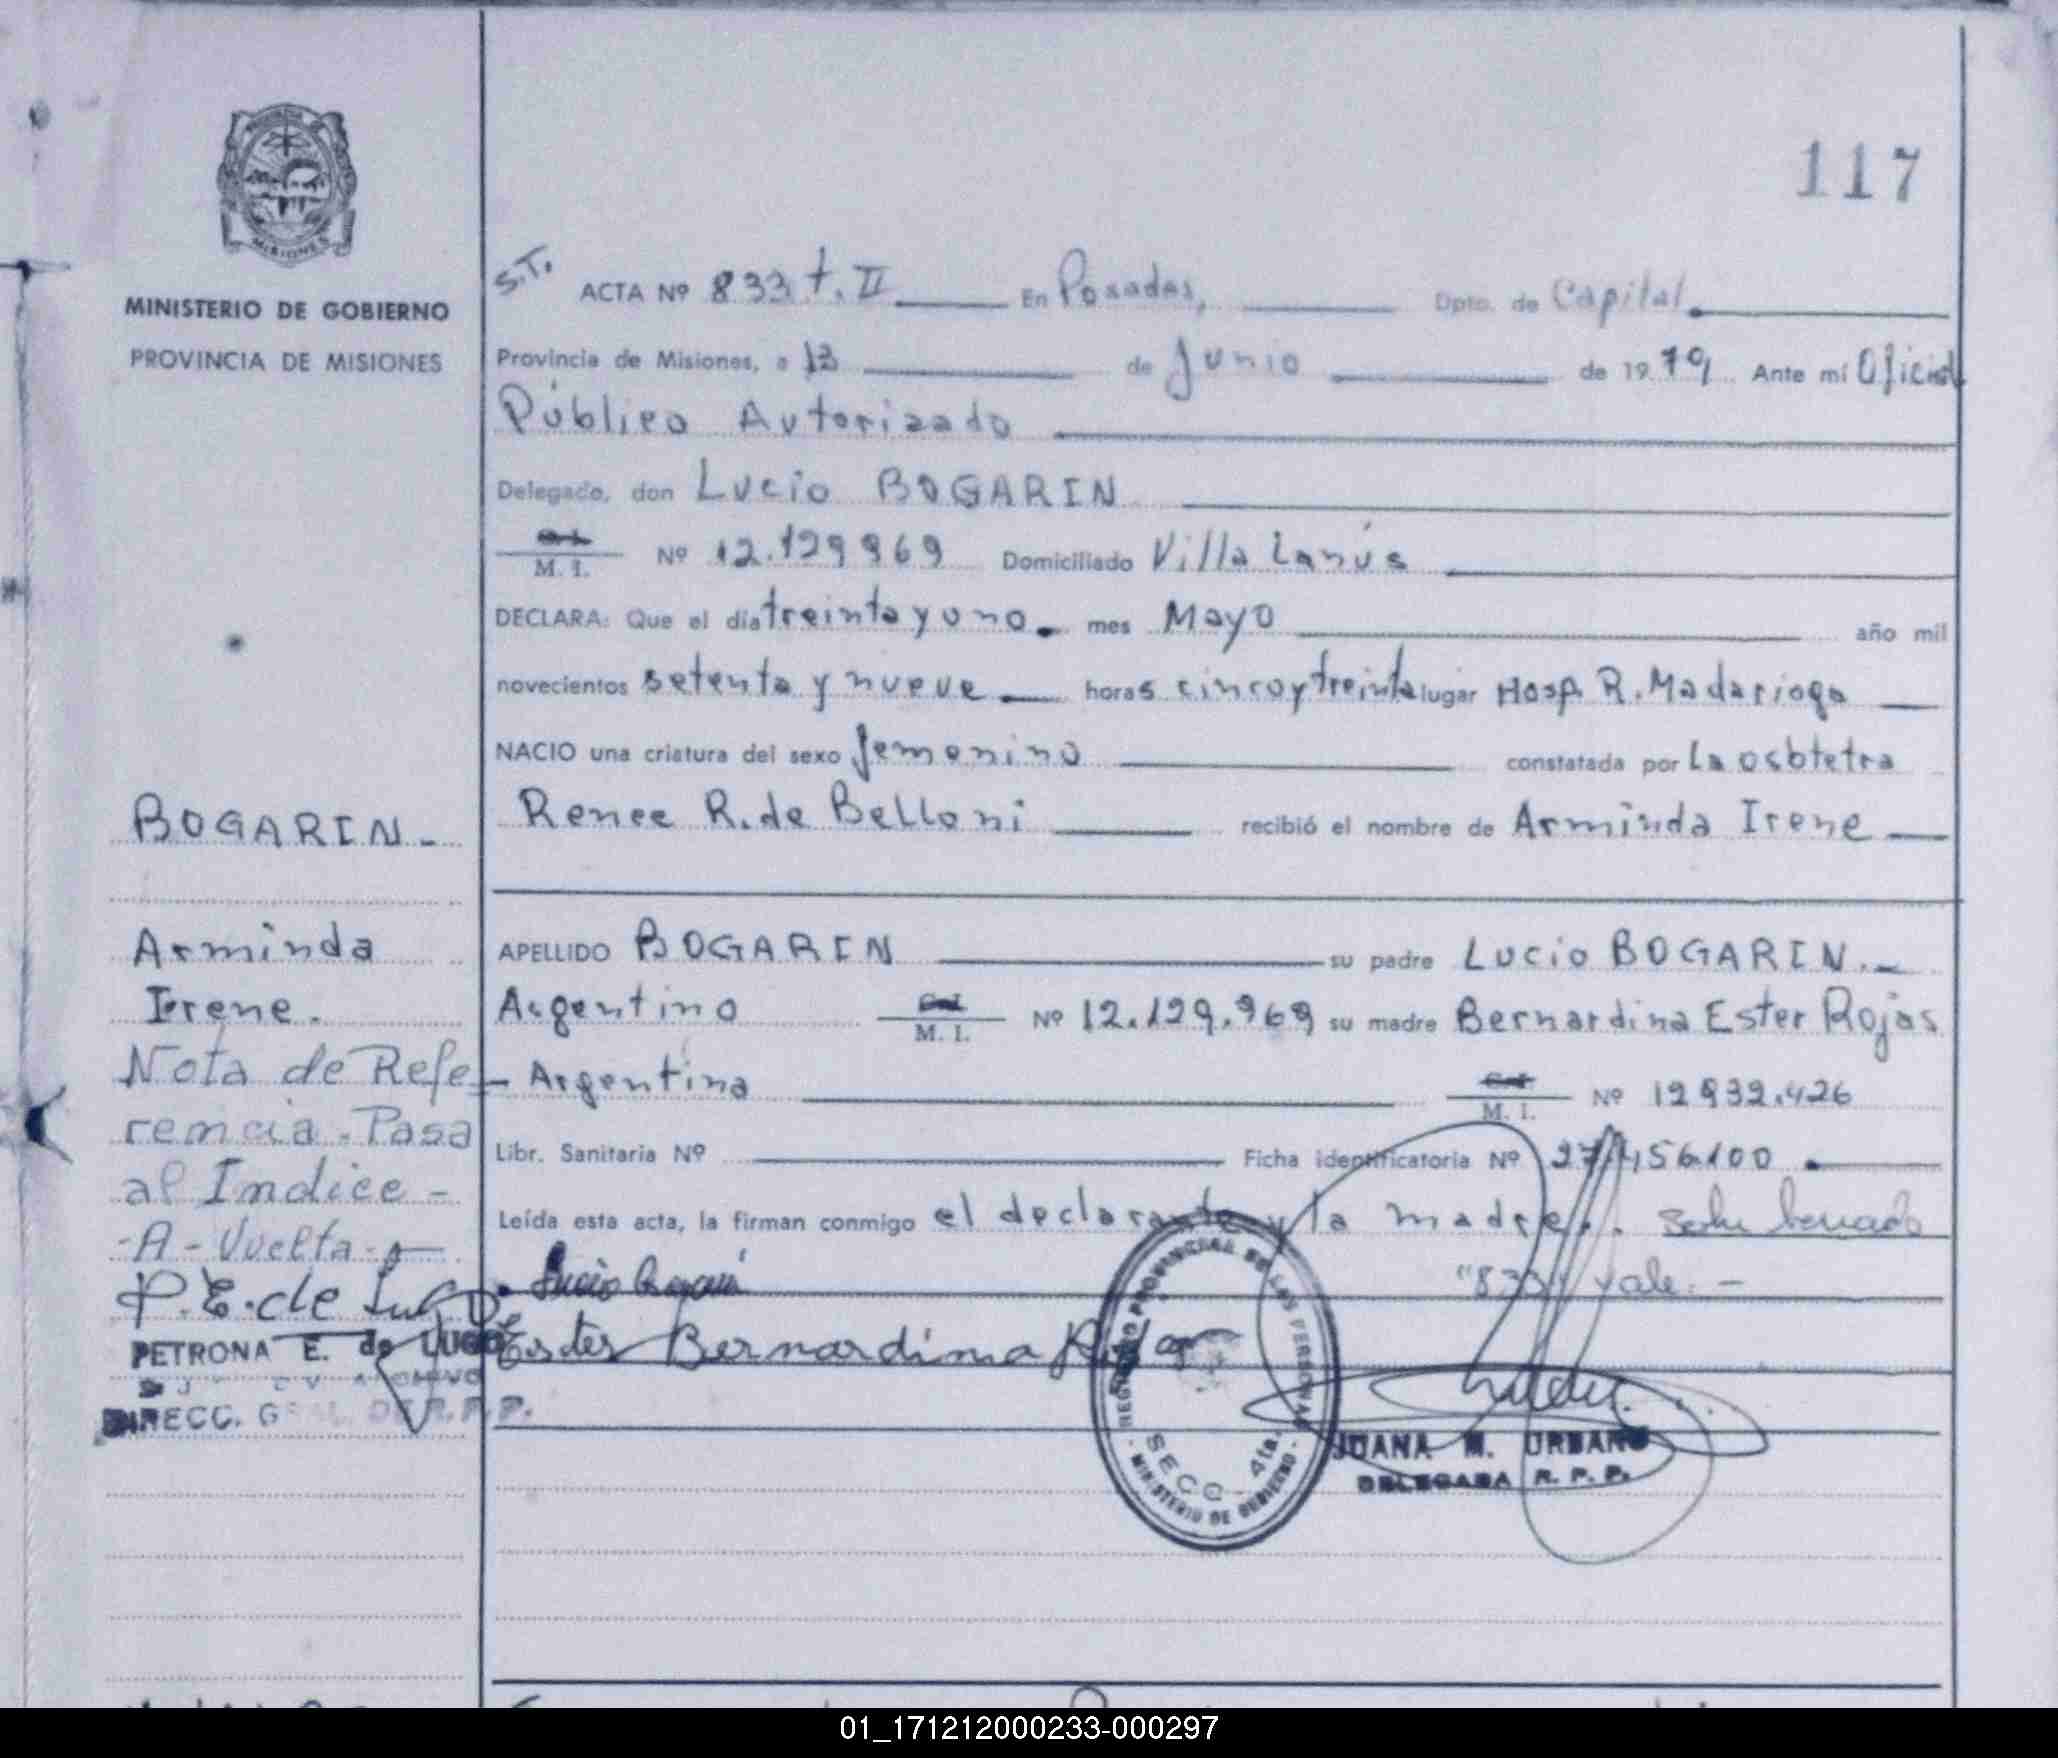 117
MISIONES
MINISTERIO DE GOBIERNO
PROVINCIA DE MISIONES
S.T. ACTA Nº 833 t. II En Posadas, Dpto. de Capital.
Provincia de Misiones, a 13 de Junio de 1979 Ante mí Oficial
Público Autorizado
Delegado, don Lucio BOGARIN
M. I. Nº 12.129969 Domiciliado Villa Lanús
DECLARA: Que el día treinta y uno mes Mayo año mil
novecientos setenta y nueve horas cinco y treinta lugar Hosp. R. Madariaga
NACIO una criatura del sexo femenino constatada por La osbtetra
Renee R. de Belloni recibió el nombre de Arminda Irene
BOGARIN.-
Arminda
Irene.
APELLIDO BOGARIN su padre Lucio BOGARIN.-
Argentino M. I. Nº 12.129.969 su madre Bernardina Ester Rojas
- Argentina M. I. Nº 12932.426
Libr. Sanitaria Nº Ficha identificatoria Nº 27.456.100
Leída esta acta, la firman conmigo el declarante y la madre.
"833" vale.-
Nota de Refe-
rencia. Pasa
al Indice-
-A-Vuelta-
P.E. de Lugo
PETRONA E. de LUGO
ARCHIVO
DIRECC. GRAL. DE R.P.P.
Ester Bernardina Rojas
REGISTRO PROVINCIAL DE LAS PERSONAS
SECC. 4ta.
- MINISTERIO DE GOBIERNO -
JUANA M. URBANO
DELEGADA R. P. P.
01_171212000233-000297